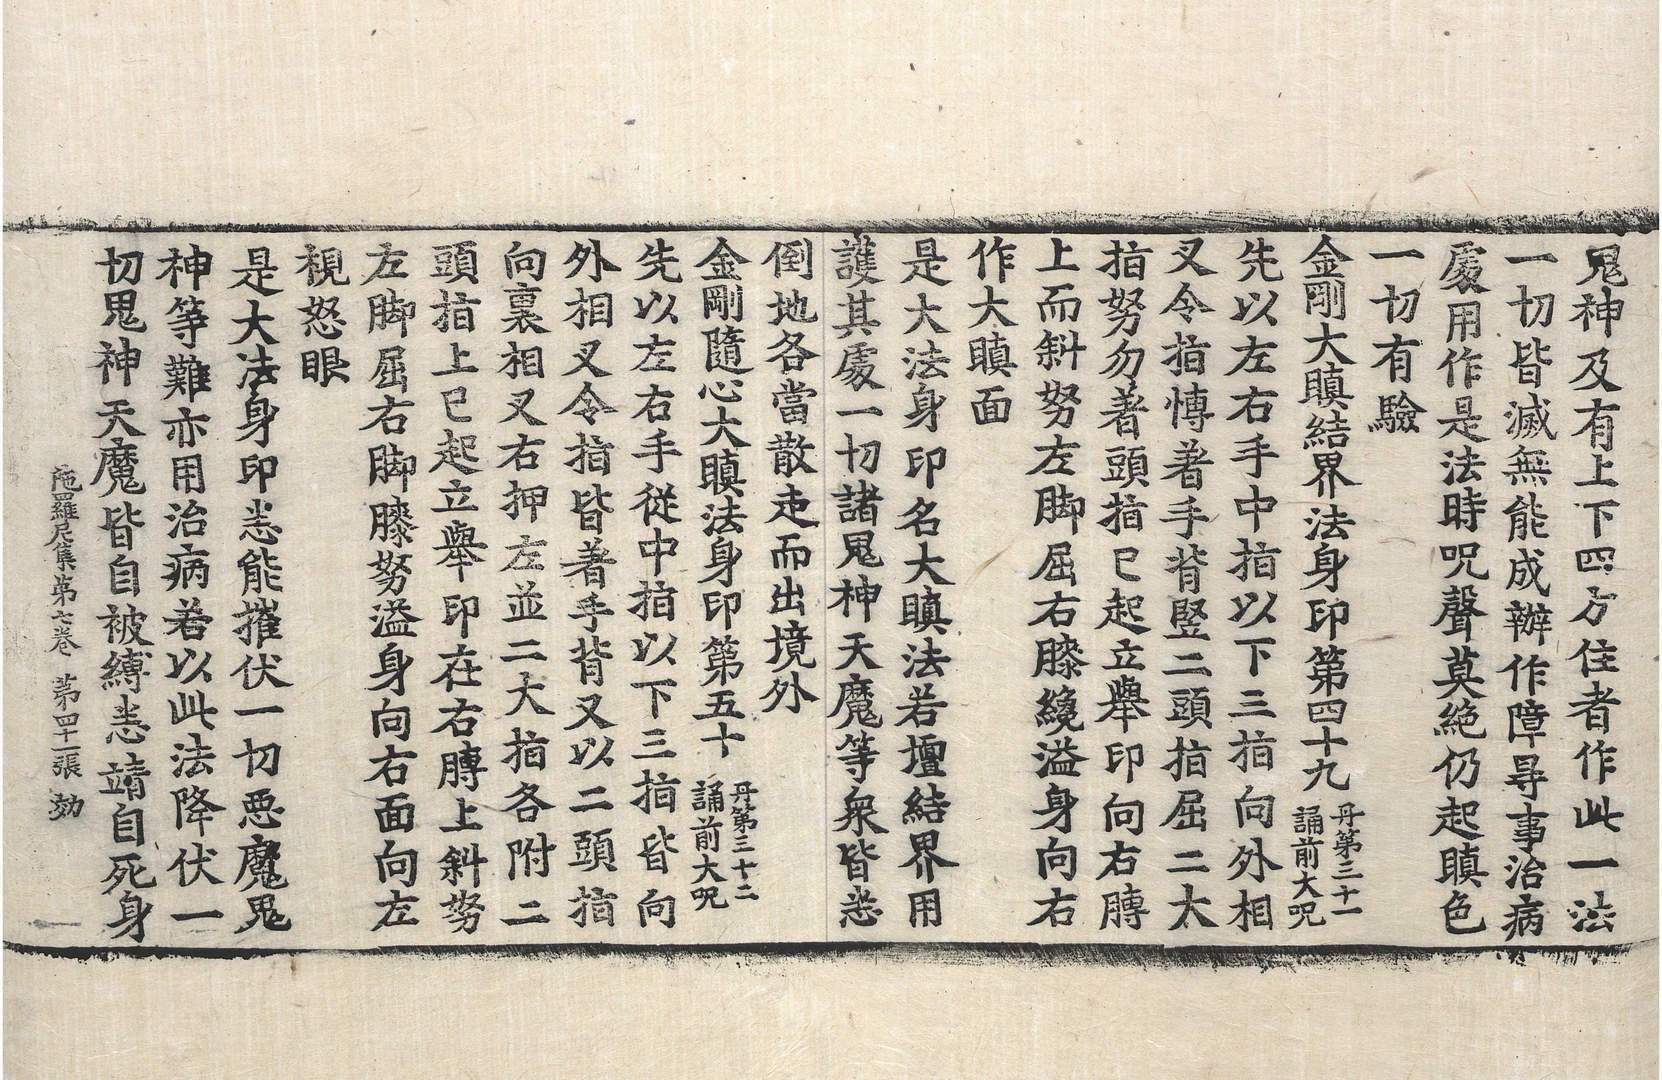 鬼神及有上下四方住者作此一法
一切皆滅無能成辦作障㝵事治病
處用作是法時呪聲莫絶仍起瞋色
一切有驗
金剛大瞋結界法身印第四十九 丹第三十一 誦前大呪
先以左右手中指以下三指向外相
叉令指愽著手背竪二頭指屈二大
指努勿著頭指已起立舉印向右膞
上而斜努左脚屈右膝纔溢身向右
作大瞋面
是大法身印名大瞋法若壇結界用
護其處一切諸鬼神天魔等衆皆悉
倒地各當散走而出境外
金剛隨心大瞋法身印第五十 丹第三十二 誦前大呪
先以左右手從中指以下三指皆向
外相叉令指皆著手背又以二頭指
向裏相叉右押左並二大指各附二
頭指上已起立舉印在右膞上斜努
左脚屈右脚膝努溢身向右面向左
䙿怒眼
是大法身印悉能摧伏一切惡魔鬼
神等難亦用治病若以此法降伏一
切鬼神天魔皆自被縛悉請自死身
陁羅尼集第七卷 第四十一張 効